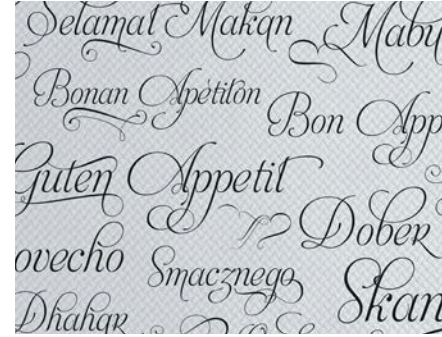 Selamat Makan
Mabu
Bonan Apétiton
Bon App
Guten Appetit
Dober
ovecho
Smacznego
Skan
Dhahar